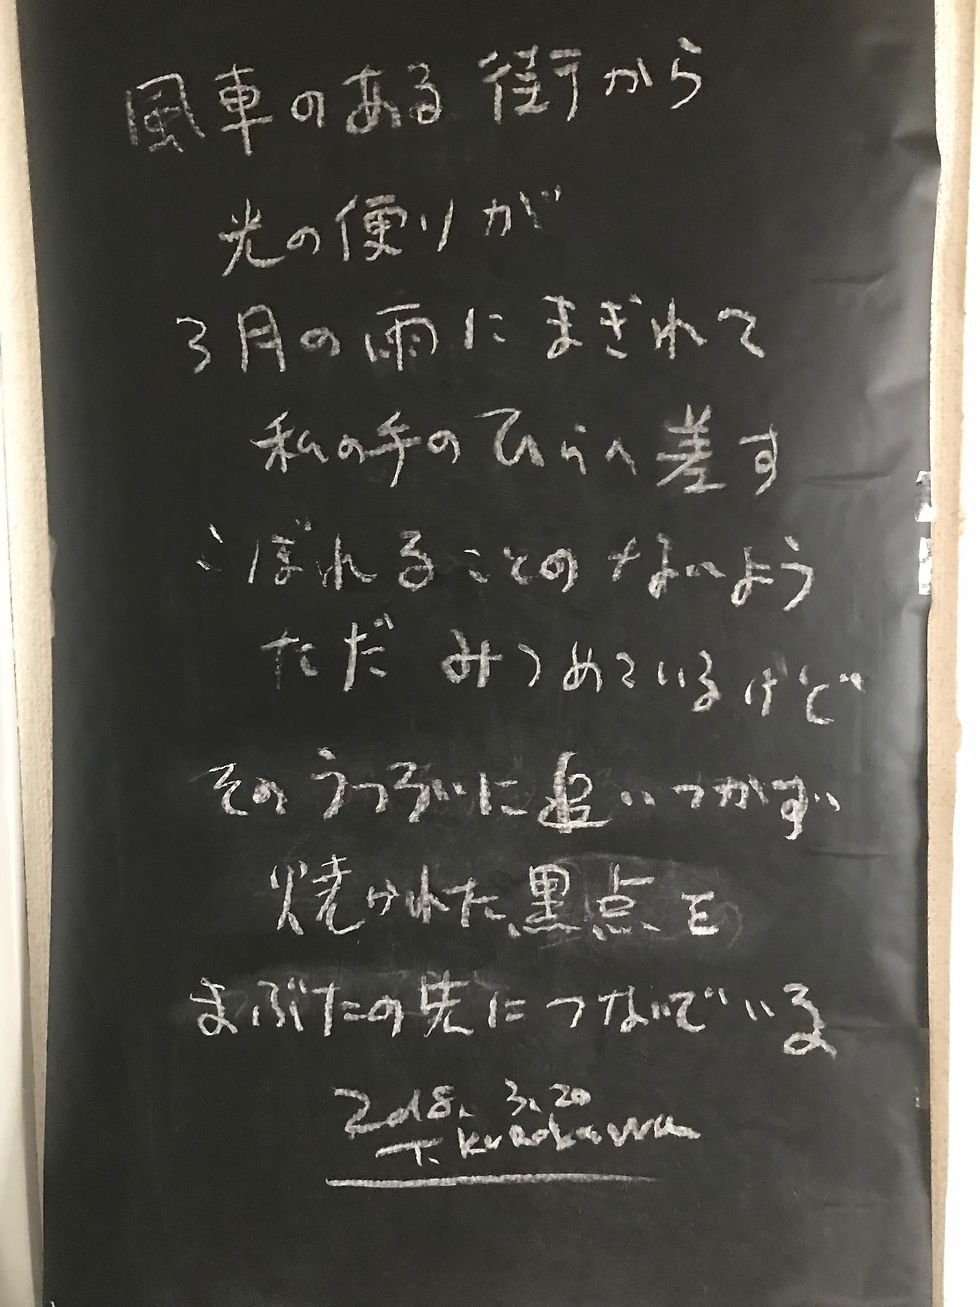 風車のある街から
光の便りが
3月の雨にまぎれて
私の手のひらへ差す
こぼれることのないよう
ただ みつめているけど
そのうつろいに追いつかずい
焼かれた黒点を
まぶたの先につないでいる
2018. 3. 20
T. Kurokawa